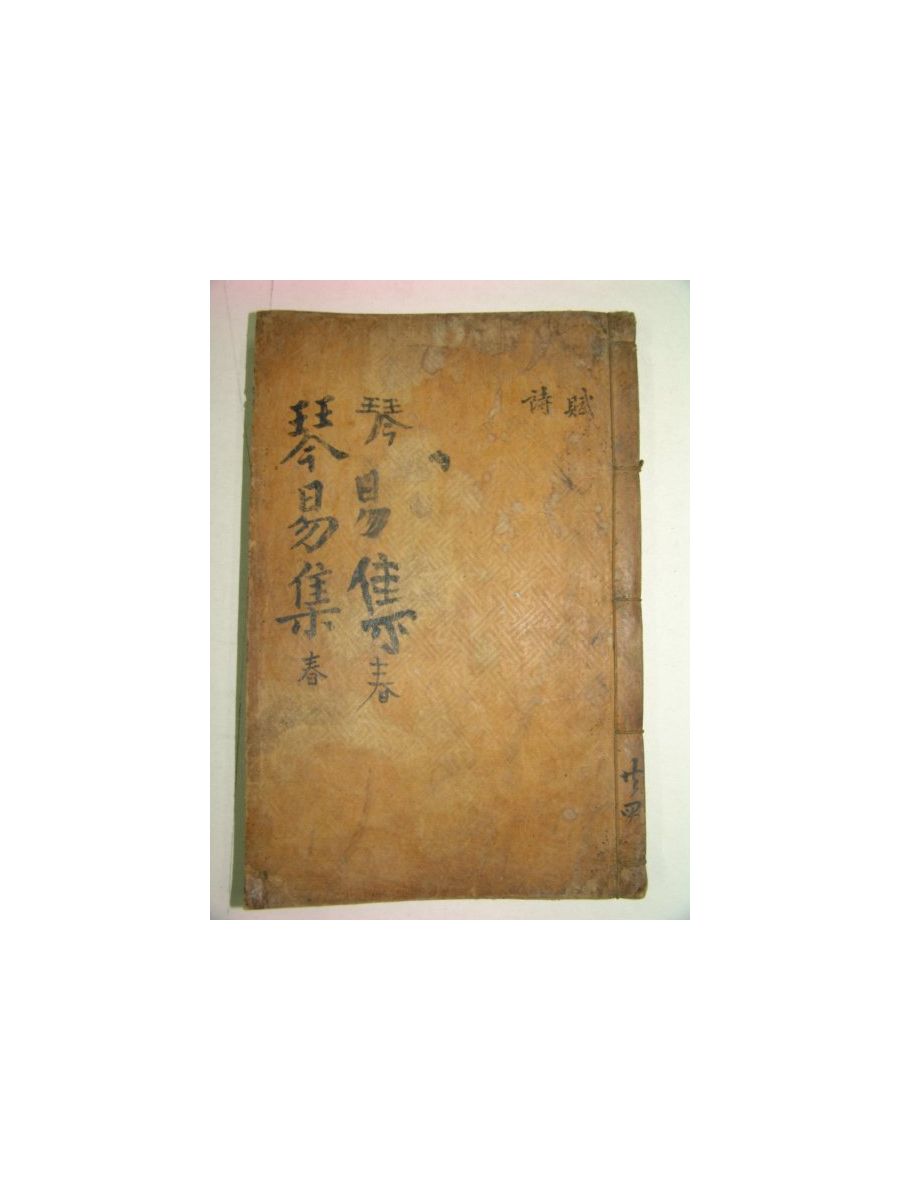 共四
賦
詩
琴易集 春
琴易集 春